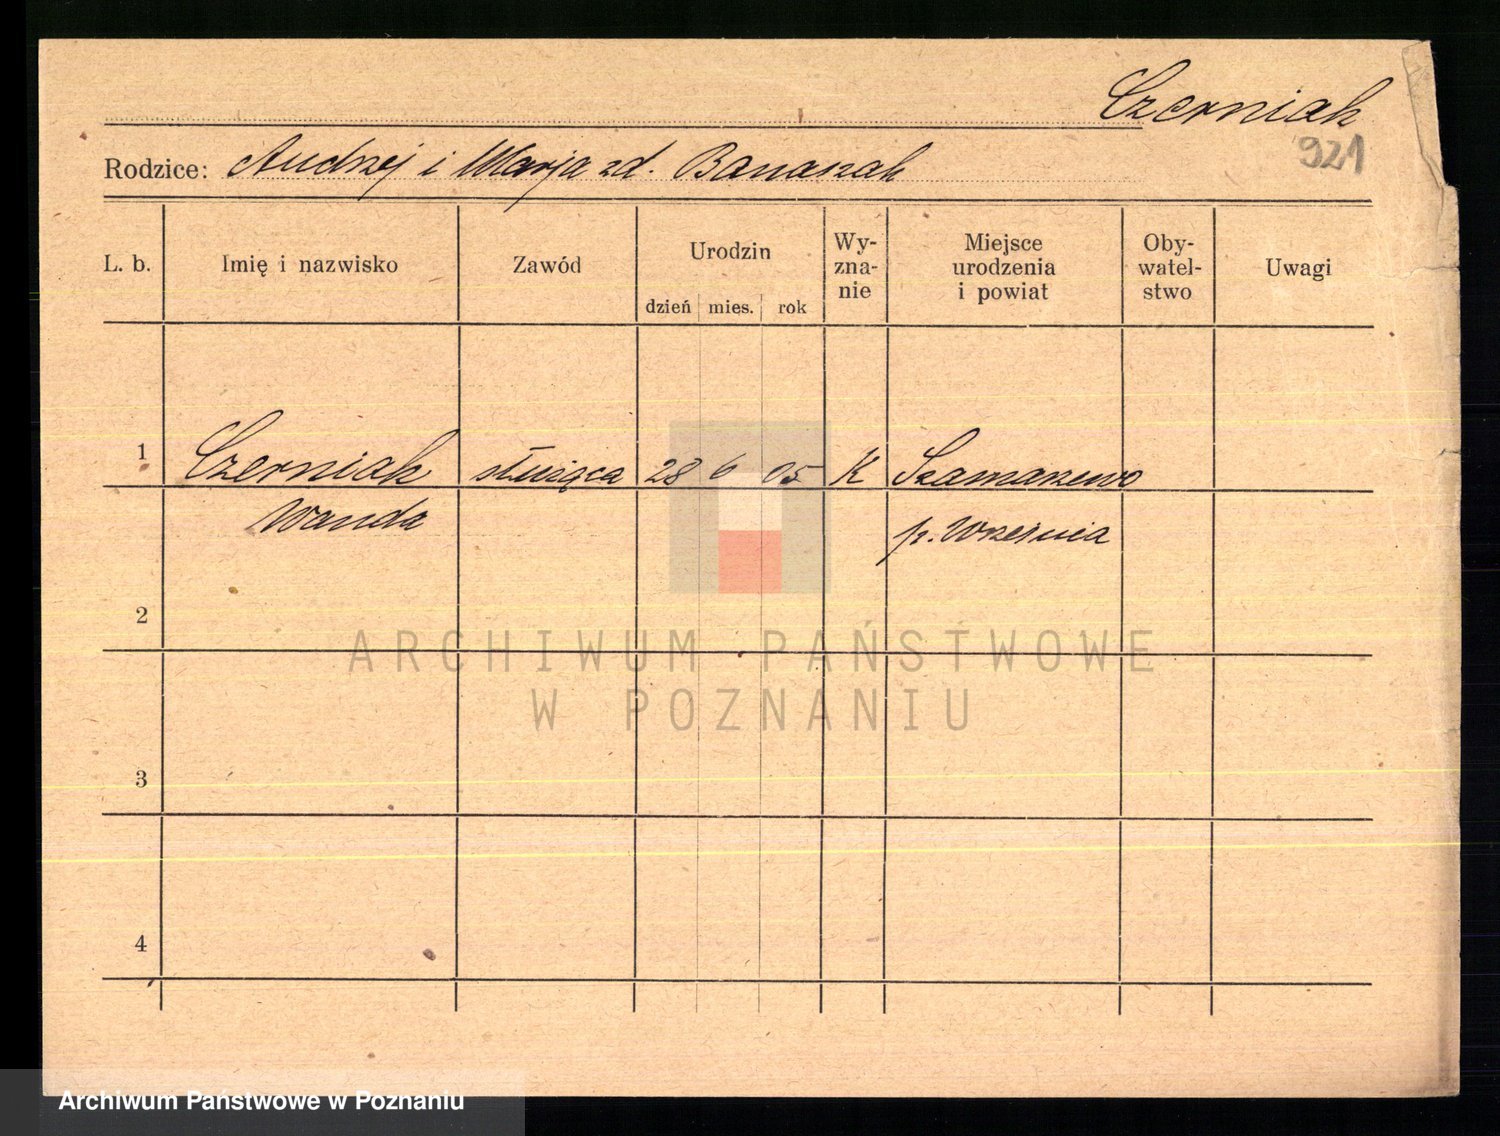 Czerniak
921
Rodzice: Andrzej i Marja zd. Banaszak
L. b. Imię i nazwisko Zawód Urodzin Wy-zna-nie Miejsce urodzenia i powiat Oby-watel-stwo Uwagi
dzień mies. rok
1 Czerniak służąca 28 6 05 K Szamarzewo
Wanda p. Września
2
ARCHIWUM PAŃSTWOWE
W POZNANIU
3
4
Archiwum Państwowe w Poznaniu